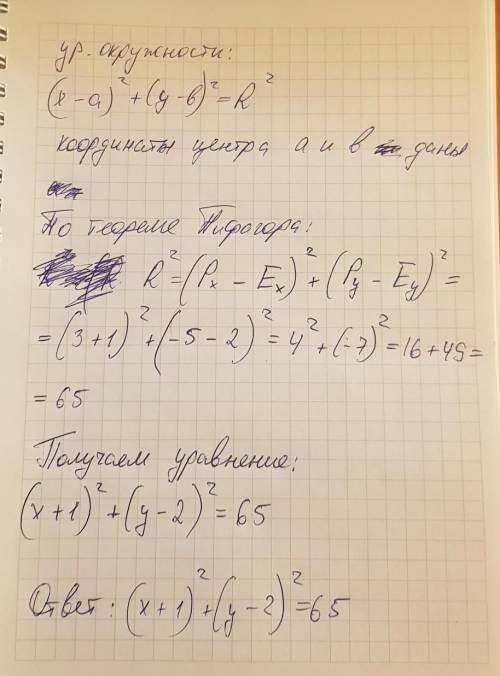 ур. окружности:
(x-a)² + (y-в)² = R²
координаты центра a и в даны
По теореме Пифагора:
R² = (Pₓ - Eₓ)² + (P_y - E_y)² =
= (3+1)² + (-5-2)² = 4² + (-7)² = 16+49 =
= 65
Получаем уравнение:
(x+1)² + (y-2)² = 65
Ответ: (x+1)² + (y-2)² = 65